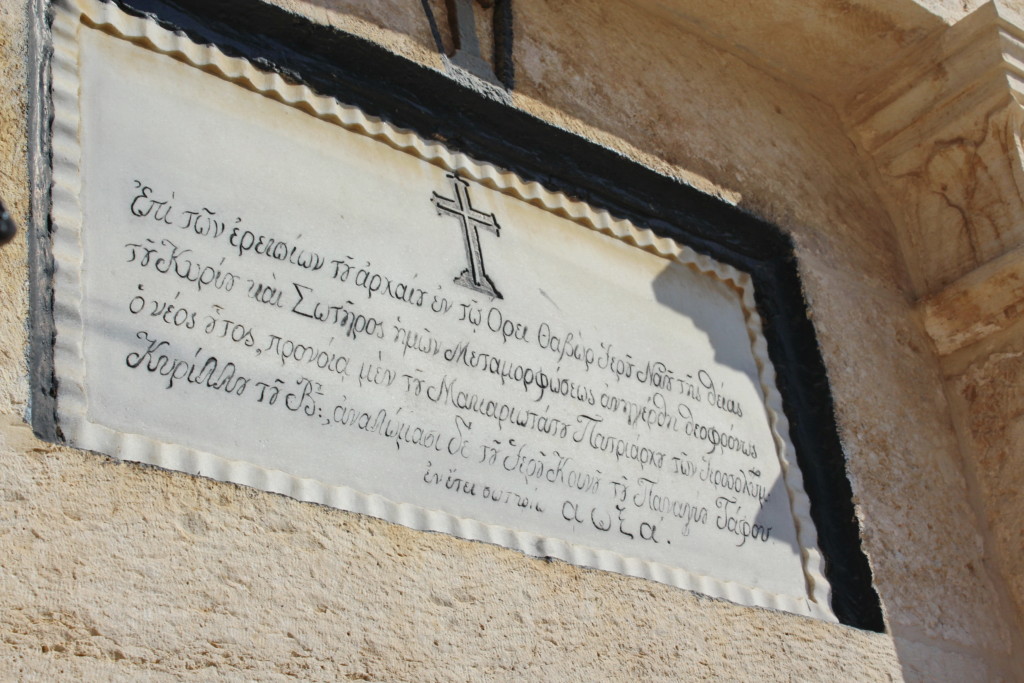 Ἐπὶ τῶν ἐρειπίων τȣ͂ ἀρχαίȣ ἐν τῷ Ορει Θαβὼρ Ἱερȣ͂ Ναȣ͂ τῆς θείας
τȣ͂ Κυρίȣ καὶ Σωτῆρος ἡμῶν Μεταμορφώσεως ἀνηγέρθη θεοφρόνως
ὁ νέος ȣ̃τος, προνοίᾳ μὲν τȣ͂ Μακαριωτάτȣ Πατριάρχȣ τῶν Ἱεροσολύμ:
Κυρίλλȣ τȣ͂ Βʹ:, ἀναλώμασι δὲ τȣ͂ Ἱερȣ͂ Κοινȣ͂ τȣ͂ Παναγίȣ Τάφου.
ἐν ἔτει σωτηρίῳ αωξα΄.